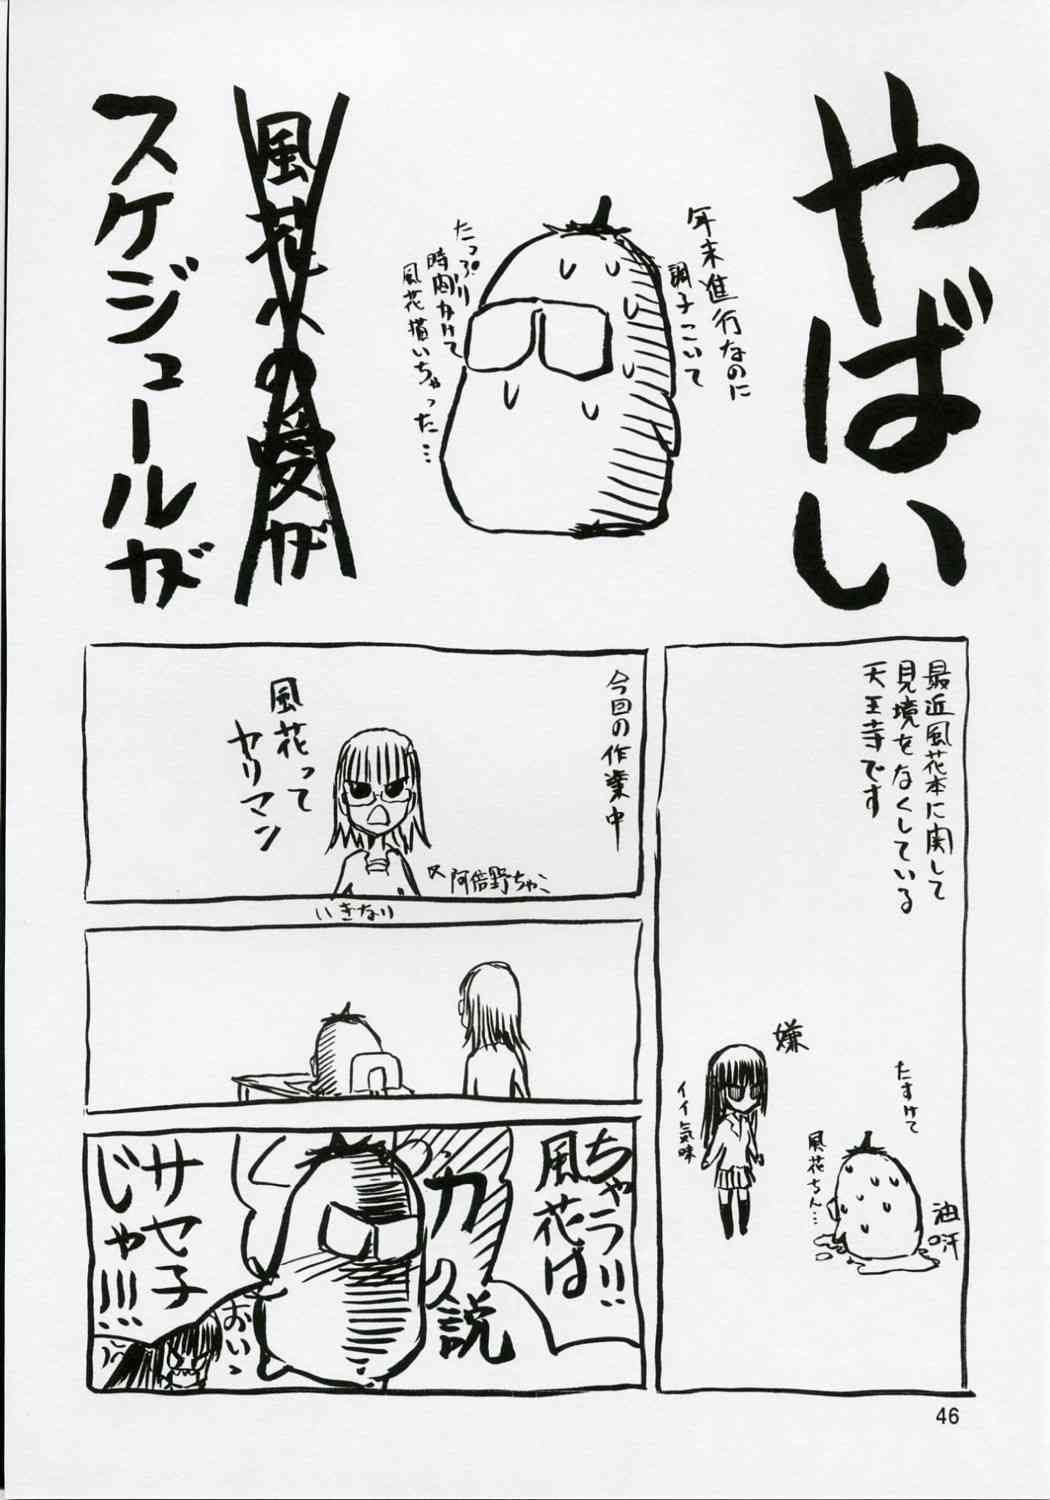 やばい
年末進行なのに
調子こいて
たっぷり
時間かけて
風花描いちゃった…
風花への愛が
スケジュールが
最近風花本に関して
見境をなくしている
天王寺です
嫌
イイ気味
たすけて
風花ちん…
油汗
今回の作業中
風花って
ヤリマン
阿倍野ちゃこ
いきなり
ちゃう!!
風花は
サセ子
じゃ!!!
力説
おいっ
46